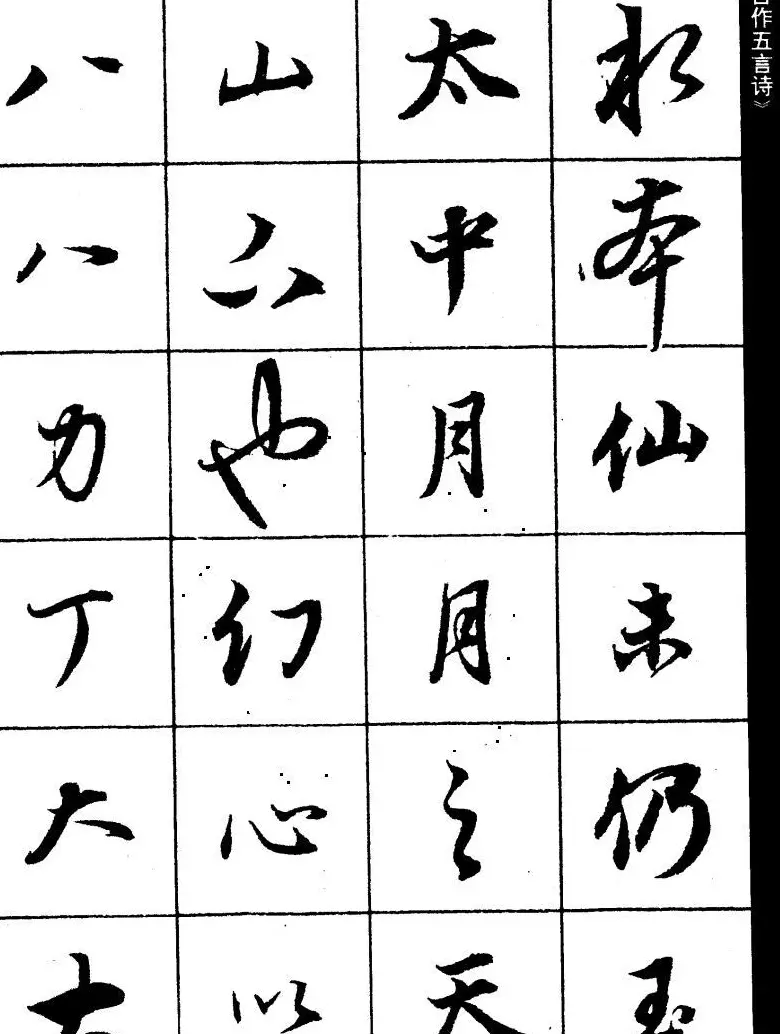 八八力丁大大
山也幻心以
太中月月之天
本仙未仍玉
作五言诗》